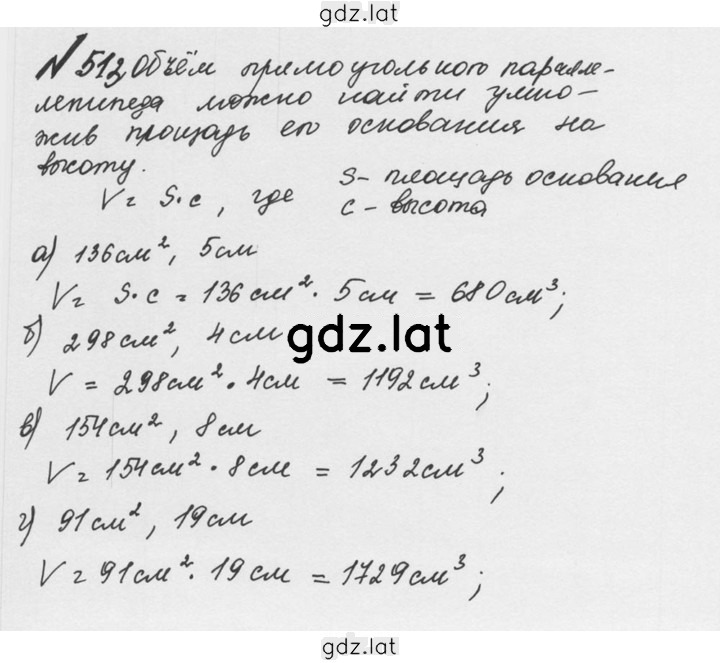 gdz.lat
N 512 Объём прямоугольного паралле-
лепипеда можно найти умно-
жив площадь его основания на
высоту.
V = S·c, где S - площадь основания
c - высота
а) 136 см², 5 см
V = S·c = 136 см² · 5 см = 680 см³;
б) 298 см², 4 см
gdz.lat
V = 298 см² · 4 см = 1192 см³;
в) 154 см², 8 см
V = 154 см² · 8 см = 1232 см³;
г) 91 см², 19 см
V = 91 см² · 19 см = 1729 см³;
gdz.lat